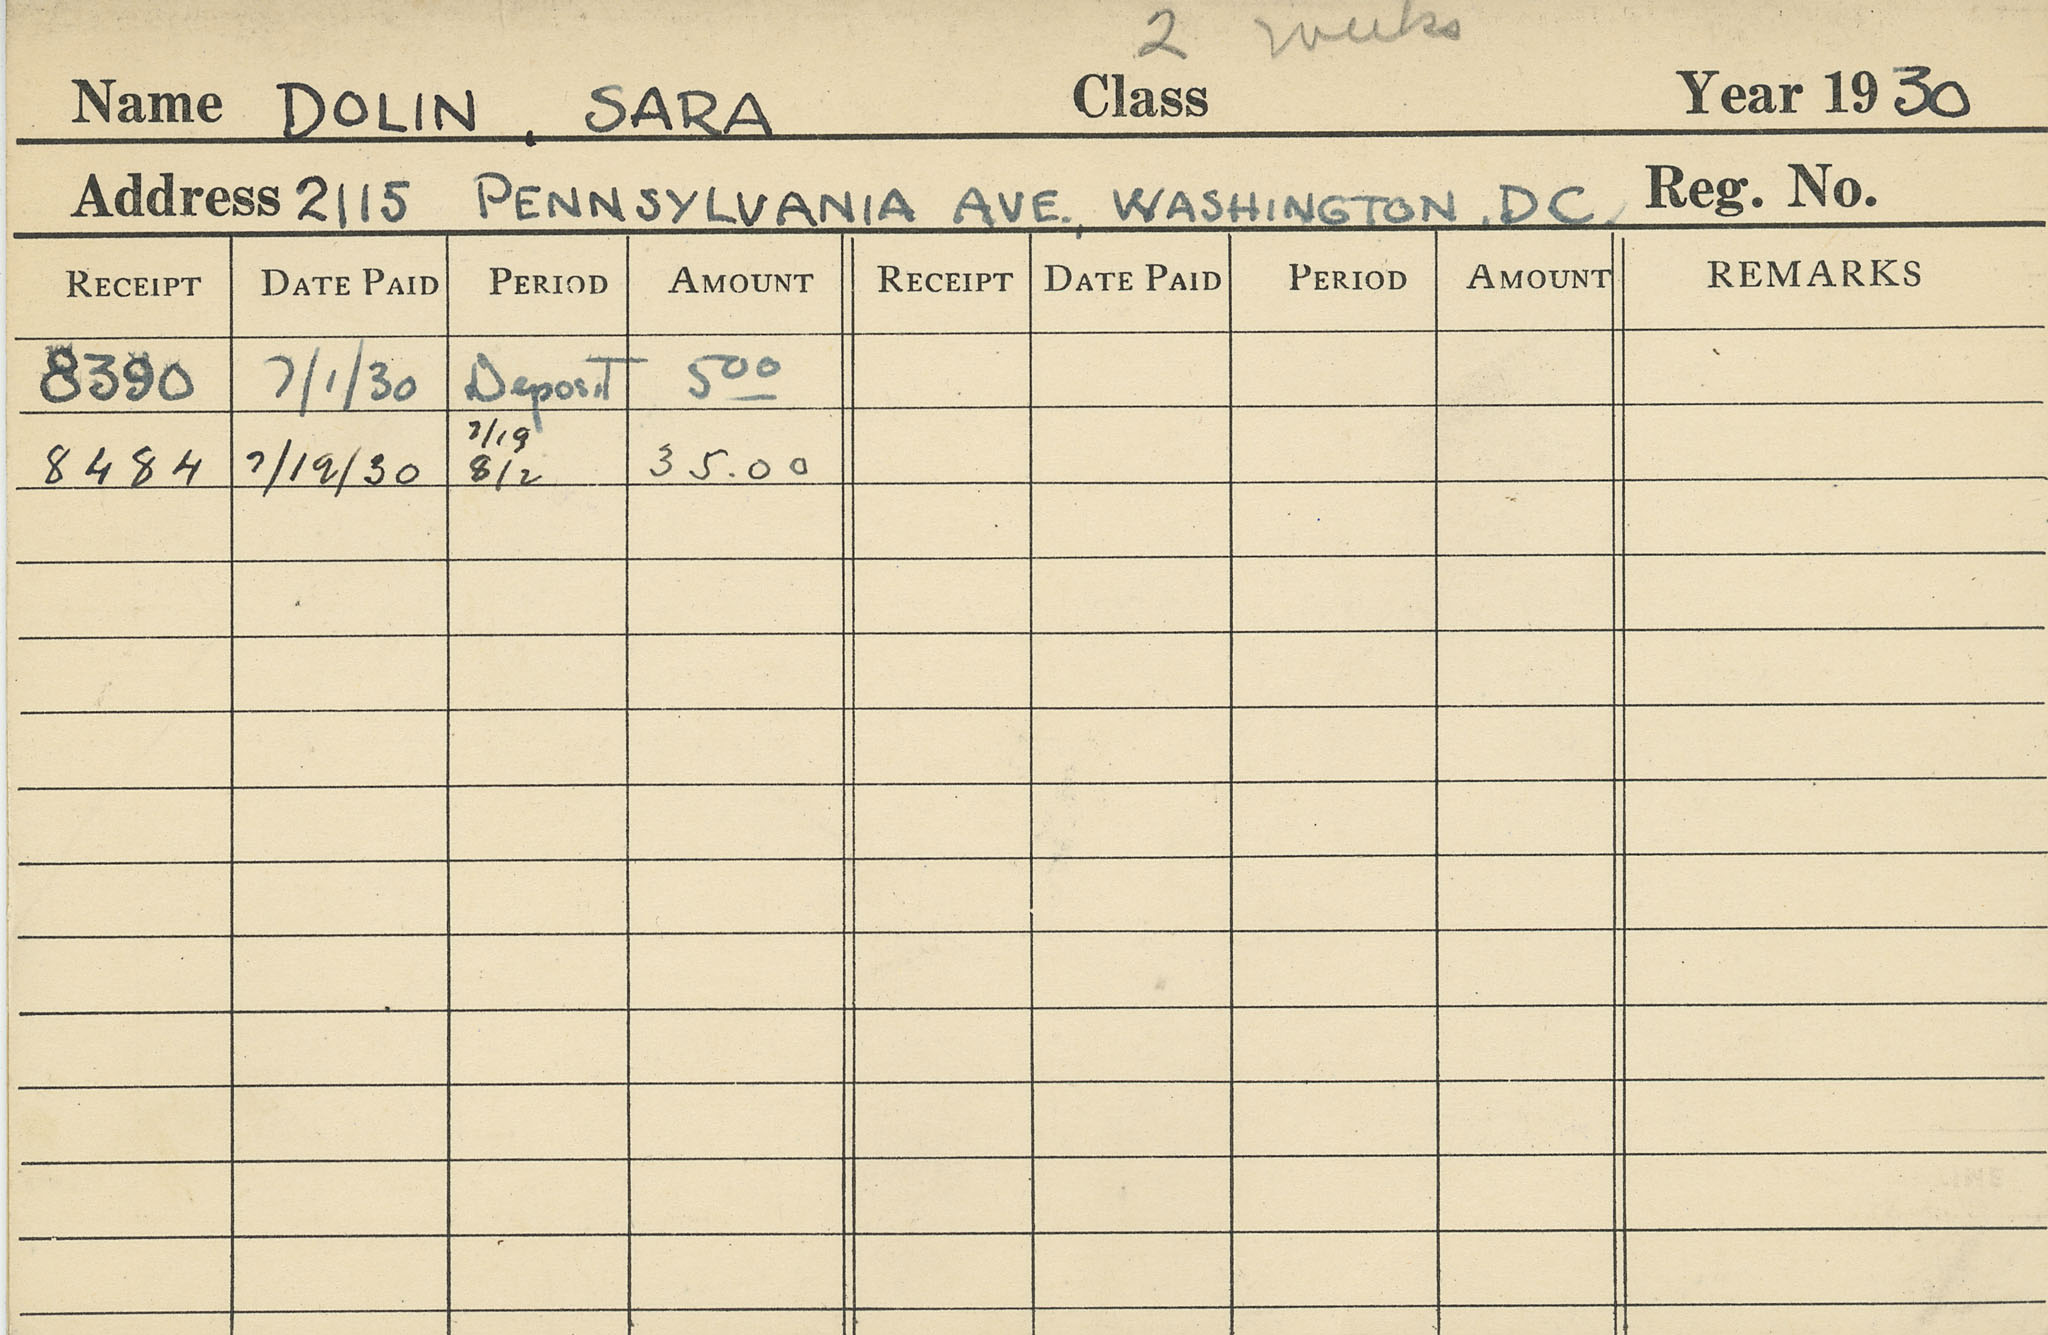 2 weeks
Name DOLIN, SARA Class Year 1930
Address 2115 PENNSYLVANIA AVE., WASHINGTON, DC. Reg. No.
RECEIPT DATE PAID PERIOD AMOUNT RECEIPT DATE PAID PERIOD AMOUNT REMARKS
8390 7/1/30 Deposit 5.00
7/19
8484 7/19/30 8/2 35.00